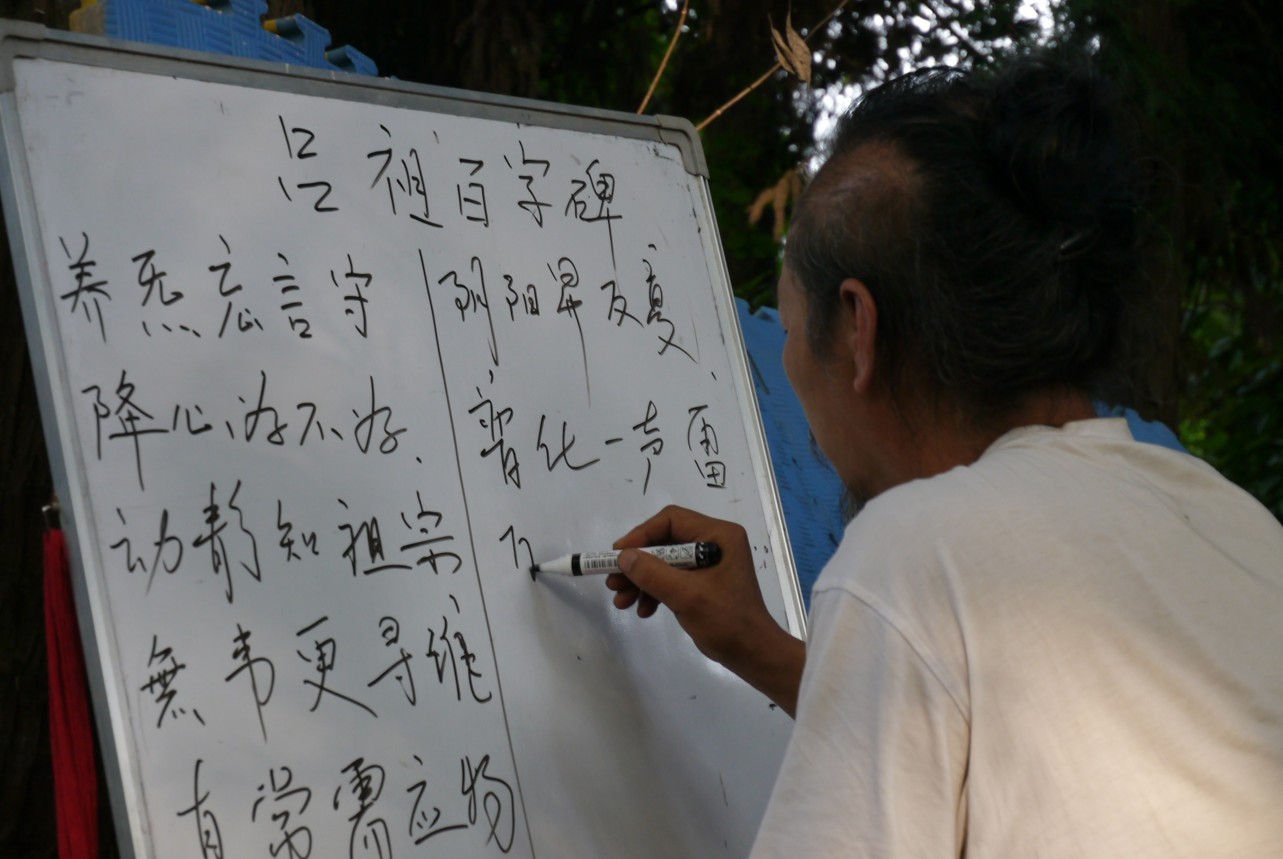 吕祖百字碑
养炁忘言守
降心为不为
动静知祖宗
無事更寻谁
常需应物
阴阳昇反复
普化一声雷